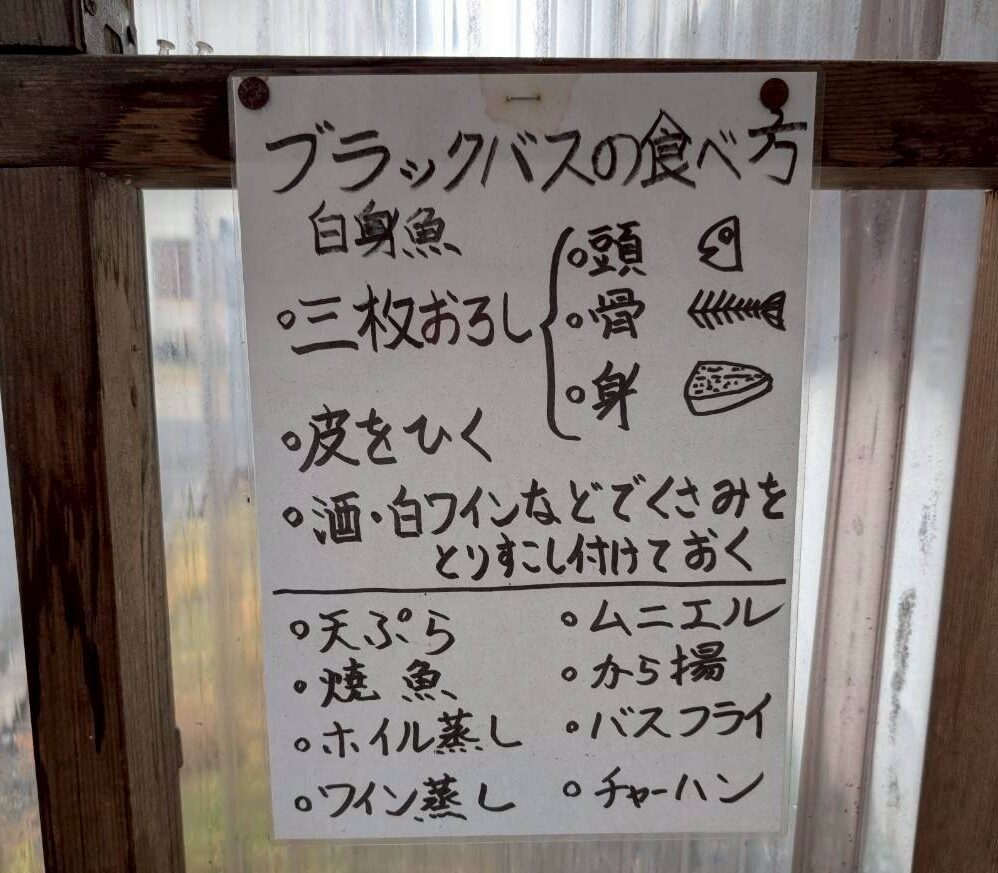 ブラックバスの食べ方
白身魚
○三枚おろし
○頭
○骨
○身
○皮をひく
○酒・白ワインなどでくさみを
とりすこし付けておく
○天ぷら
○焼魚
○ホイル蒸し
○ワイン蒸し
○ムニエル
○から揚
○バスフライ
○チャーハン